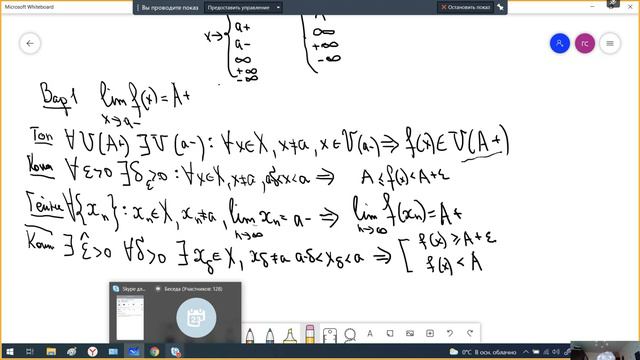 Microsoft Whiteboard
Вы проводите показ Предоставить управление Остановить показ
x→ { a+ a- ∞ +∞ -∞ { ∞ +∞ -∞
ГС
Вар1 lim f(x) = A+
x→a-
Топ ∀U(A+) ∃U(a-): ∀x∈X, x≠a, x∈U(a-) ⇒ f(x)∈U(A+)
∀ε>0 ∃δε>0 : ∀x∈X, x≠a, a-δ<x<a ⇒ A≤f(x)<A+ε
Гейне ∀{xn}: xn∈X, xn≠a, lim xn = a- ⇒ lim f(xn) = A+
n→∞ n→∞
∃ε̂>0 ∀δ>0 ∃xδ∈X, xδ≠a a-δ<xδ<a ⇒ [ f(x)≥A+ε
f(x)<A
Беседа (Участников: 128)
0°C В осн. облачно